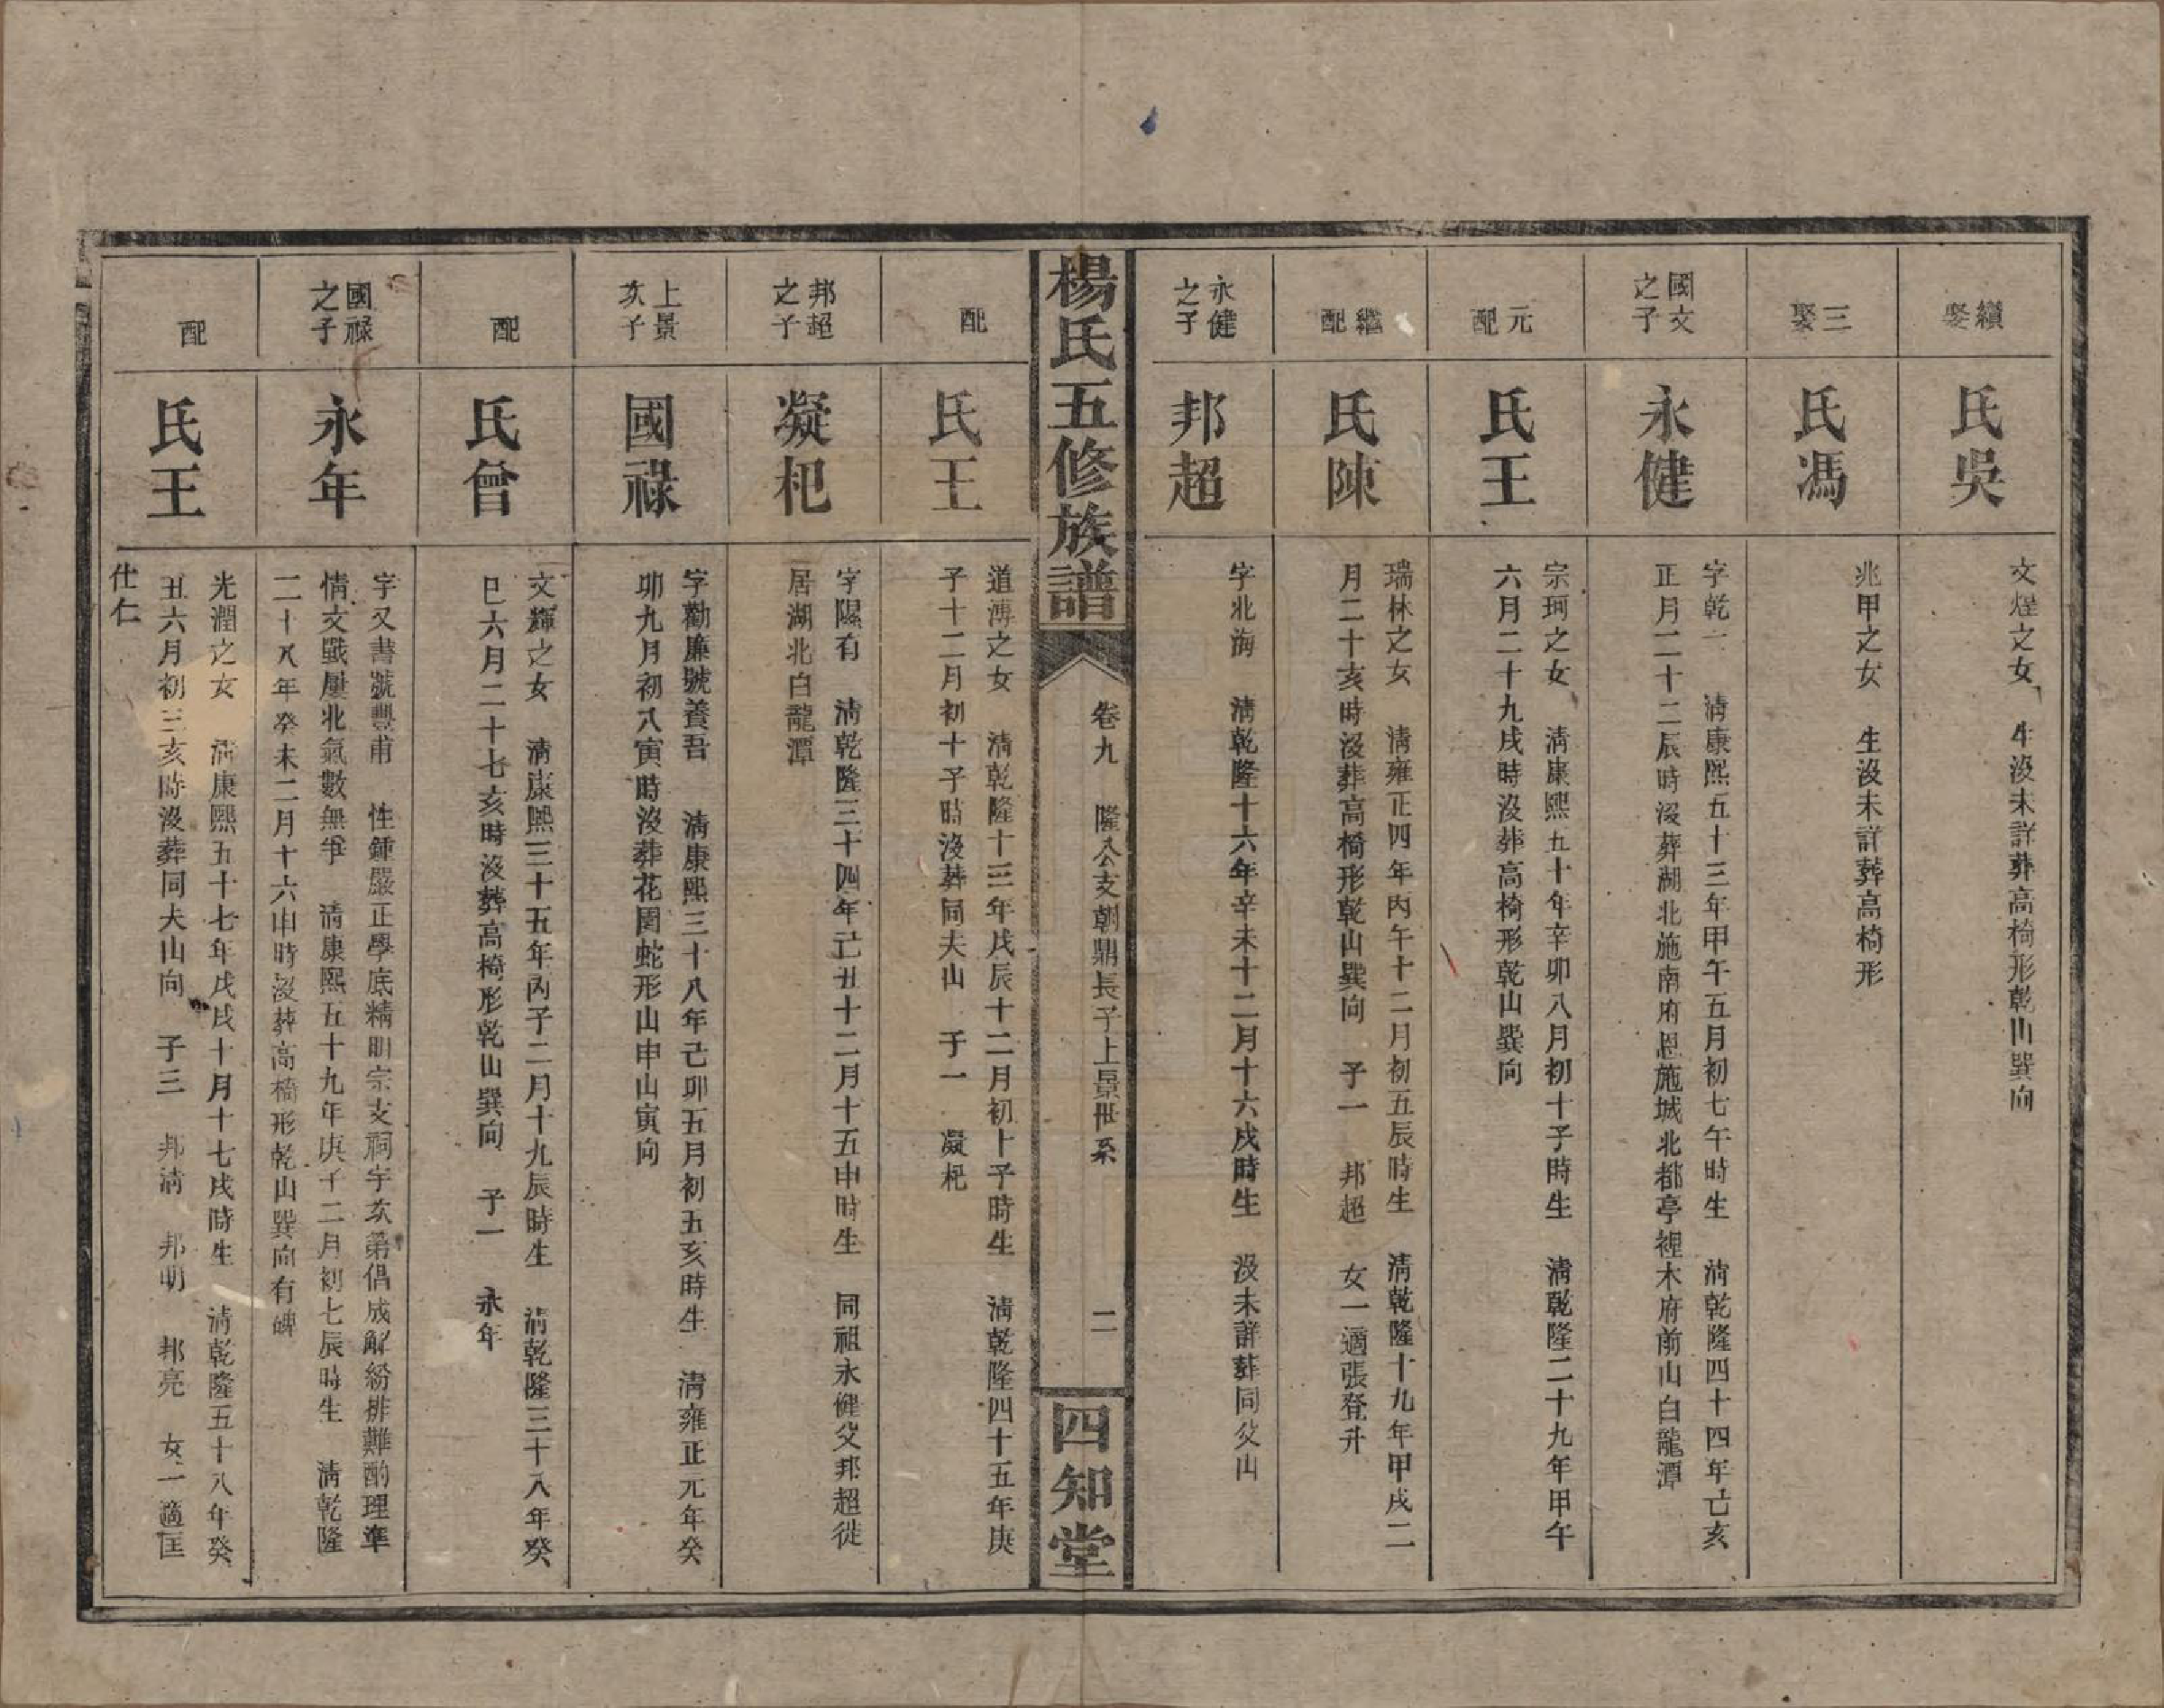 續娶
氏吳
文煌之女 生沒未詳葬高椅形乾山巽向
三娶
氏馮
兆甲之女 生沒未詳葬高椅形
國文之子
永健
字乾一 清康熙五十三年甲午五月初七午時生 清乾隆四十四年亡亥
正月二十二辰時沒葬湖北施南府恩施城北都亭裡木府前山白龍潭
元配
氏王
宗珂之女 清康熙五十年辛卯八月初十子時生 清乾隆二十九年甲午
六月二十九戌時沒葬高椅形乾山巽向
繼配
氏陳
瑞林之女 清雍正四年丙午十二月初五辰時生 清乾隆十九年甲戌二
月二十亥時沒葬高椅形乾山巽向 子一 邦超 女一適張登升
永健之子
邦超
字北海 清乾隆十六年辛未十二月十六戌時生 沒未詳葬同父山
楊氏五修族譜
卷九 隆公支朝鼎長子上景世系
二
四知堂
配
氏王
道溥之女 清乾隆十三年戊辰十二月初十子時生 清乾隆四十五年庚
子十二月初十子時沒葬同夫山 子一 凝杞
邦超之子
凝杞
字陽有 清乾隆三十四年己丑十二月十五申時生 同祖永健父邦超徙
居湖北白龍潭
上景次子
國祿
字勸廉號養吾 清康熙三十八年己卯五月初五亥時生 清雍正元年癸
卯九月初八寅時沒葬花園蛇形山申山寅向
配
氏曾
文輝之女 清康熙三十五年丙子二月十九辰時生 清乾隆三十八年癸
巳六月二十七亥時沒葬高椅形乾山巽向 子一 永年
國祿之子
永年
字又書號豐甫 性鍾嚴正學底精明宗支祠宇次第倡成解紛排難酌理準
情文戰屢北氣數無爭 清康熙五十九年庚子二月初七辰時生 清乾隆
二十八年癸未二月十六申時沒葬高椅形乾山巽向有碑
配
氏王
光潤之女 清康熙五十七年戊戌十月十七戌時生 清乾隆五十八年癸
丑六月初三亥時沒葬同夫山向 子三 邦清 邦明 邦亮 女一適匡
仕仁